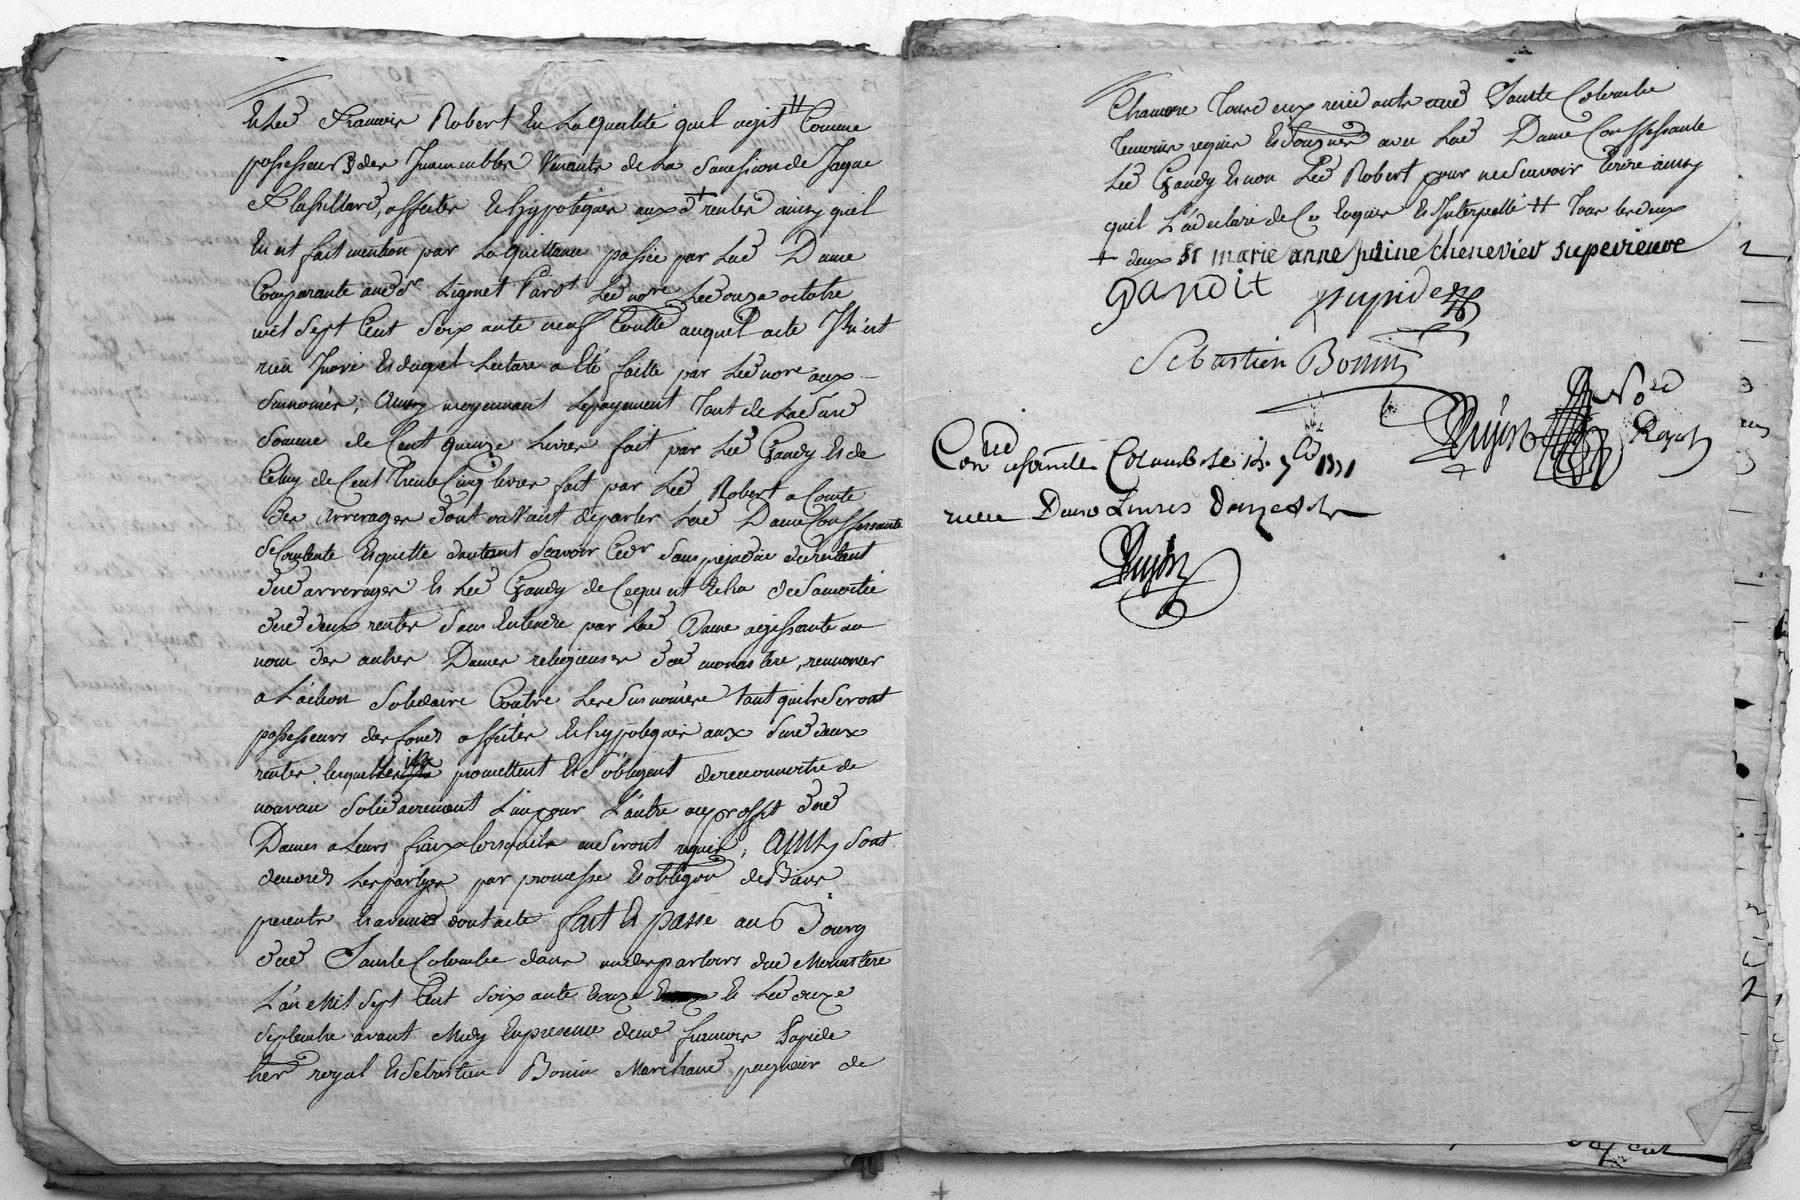 Et led François Robert en la qualité quil agit # Comme
possesseur des Immeubles Venants de la Sucession de Jaque
affectés et hypotéqués aux d + rentes ainsy quil
en est fait mention par la quittance passée par lad Dame
Comparante aud Sr Ligonet led nore led onze octobre
mil Sept Cent Soixante neuf Contte auquel acte Il n'est
rien Inové et duquel lecture a été faitte par led nore aux
Surnomés; Ainsy moyennant le payement tant de lad Susd
Somme de Cent quinze livres fait par led Gandy et de
Celuy de Cent trente Cinq livres fait par led Robert a Comte
des arrerages dont on Vaint de parler lad Dame Confessante
Se Contente et quitte Sans prejudice du restant
desd arrerages et led Gandy de de Sa moitié
desd deux rentes Sans Entendre par lad Dame agissante au
nom des autres Dames religieuses dud monastere, renoncer
a L'action Solidaire Contre les Susnomés tant quils Seront
possesseurs des fonds affectés et hypotéqués aux Susd deux
rentes lesquelles ils promettent et S'obligent de reconnoitre de
nouveau Solidairement L'un pour L'autre au proffit desd
Dames a leurs fraix lorsquils en Seront requis; Ainsy Sont
demeurés les partyes par promesse et obligon de Biens
presents et avenir dont acte fait et passé au Bourg
dud Sainte Colombe dans un des parloirs dud Monastere
L'an Mil Sept Cent Soixante onze et led onze
Septembre avant Midy en presence de me françois Pupide
her royal et Sébastien Bonin Marchand peigneur de
Chanvre Tous deux residants aud Sainte Colombe
Temoins requis et Soussignés avec lad Dame Confessante
Led Gandy et non led Robert pour ne Scavoir Ecrire ainsy
quil L'a declaré de Ce Enquis et Interpellé # Tous les deux
+ deux Sr marie anne chenevier superieure
gandit pupide
Sébastien Bonin
Nore
Royal
Conlé a Sainte Colombe le 14 7bre 1771
recu Douze Livres Douze Sols